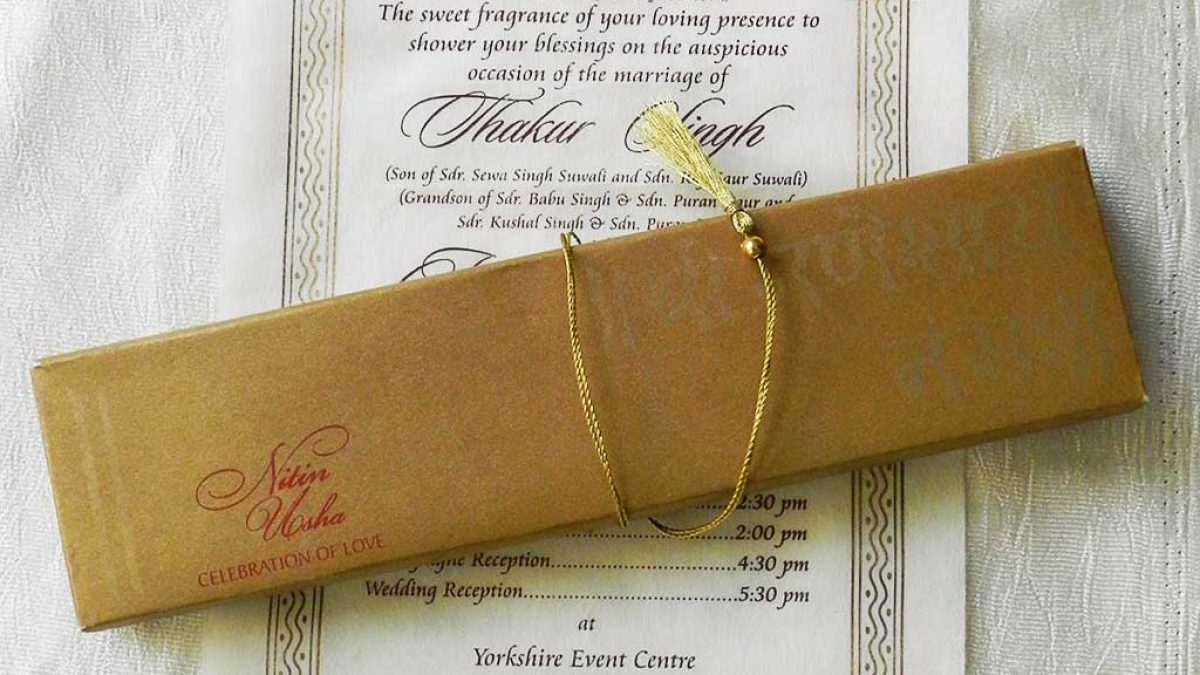 The sweet fragrance of your loving presence to
shower your blessings on the auspicious
occasion of the marriage of
Thakur Singh
(Son of Sdr. Sewa Singh Suwali and Sdn. Kaur Suwali)
(Grandson of Sdr. Babu Singh & Sdn. Puran Kaur and
Sdr. Kushal Singh & Sdn.
॥ श्री गणेशाय
नमः ॥
Nitin
Usha
CELEBRATION OF LOVE
2:30 pm
2:00 pm
Reception 4:30 pm
Wedding Reception 5:30 pm
at
Yorkshire Event Centre